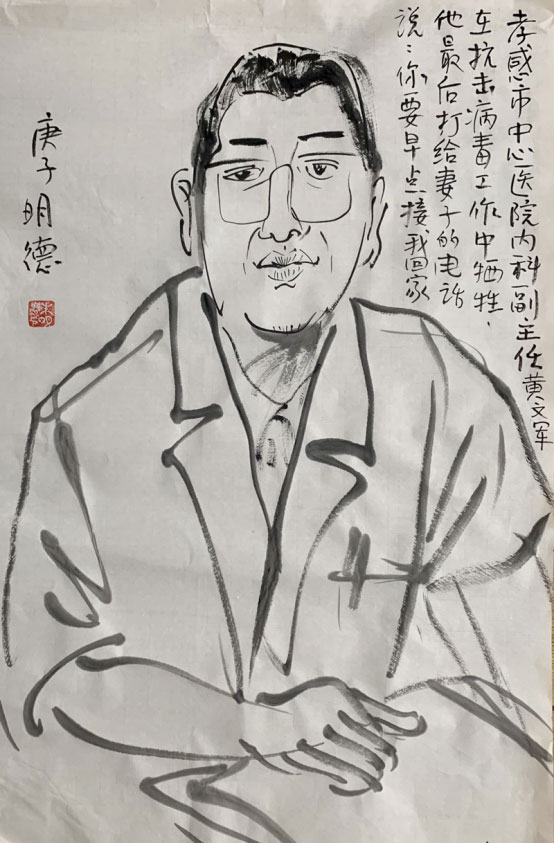 孝感市中心医院内科副主任黄文军
在抗击病毒工作中牺牲，
他最后打给妻子的电话
说：你要早点接我回家
庚子明德